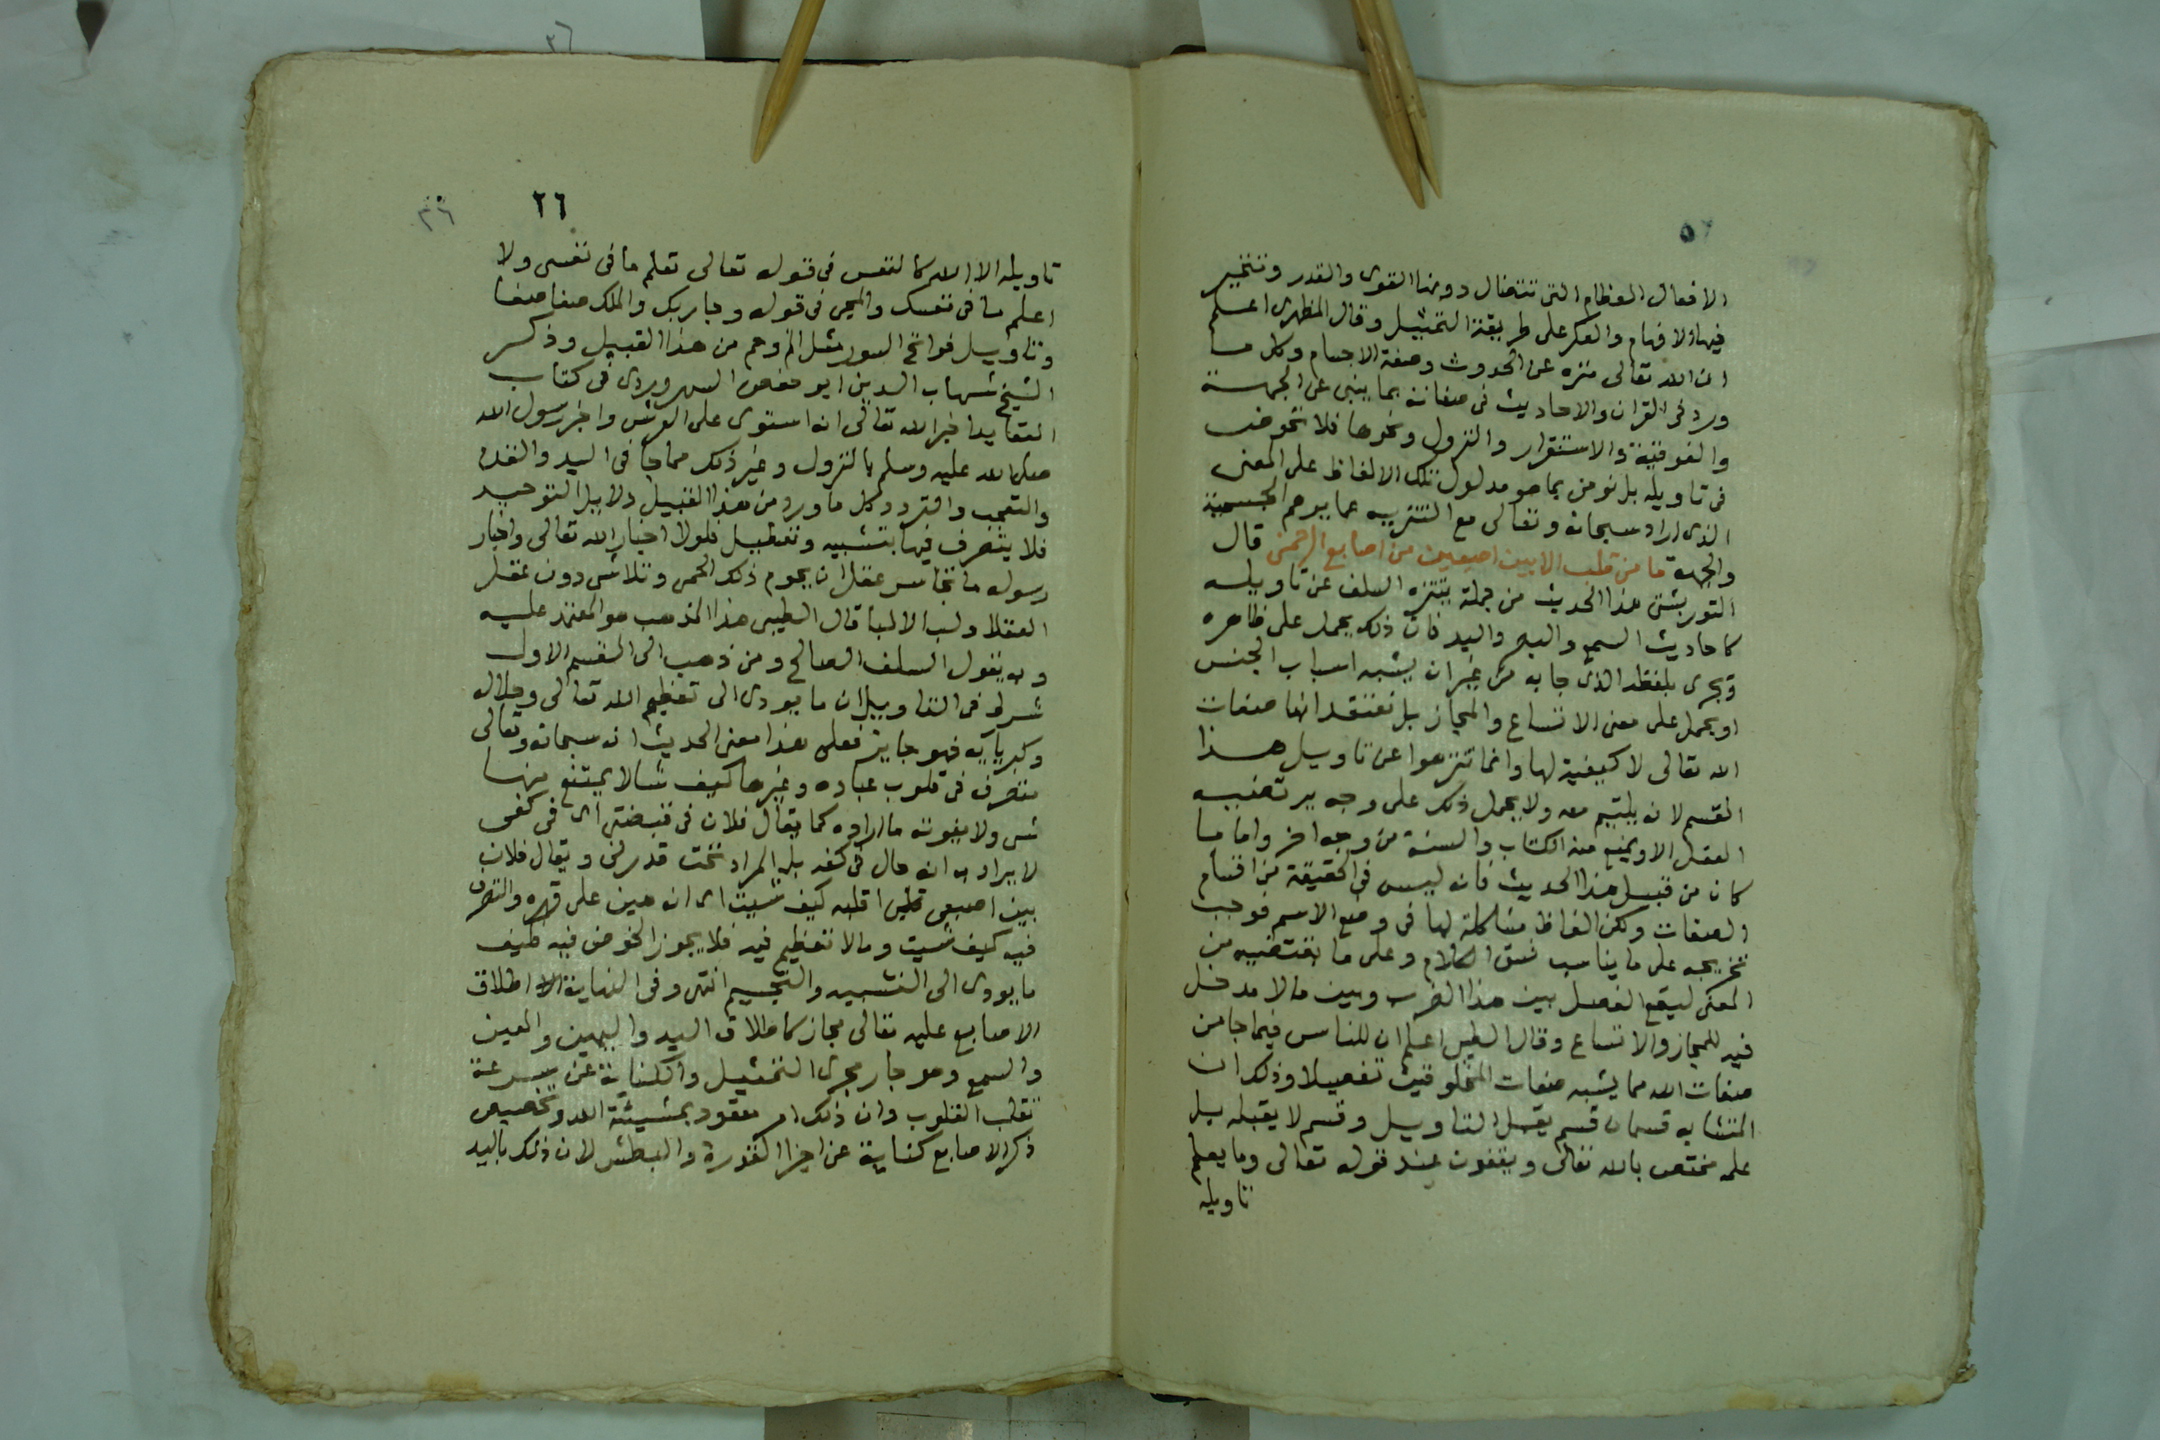 الافعال العظام التى تتضال دونها القوى والقدر وتتحير
فيها الافهام والفكر على طريقة التخييل وقال المظهرى اعلم
ان الله تعالى منزه عن الحدوث وصفة الاجسام وكل ما
ورد فى القران والاحاديث فى صفاته بما ينبى عن الجهة
والفوقية والاستقرار والنزول ونحوها فلا نخوض
فى تاويله بل نومن بما هو مدلول تلك الالفاظ على المعنى
الذى اراد سبحانه وتعالى مع التنزيه عما يوهم الجسمية
والجهة ما من قلب الا بين اصبعين من اصابع الرحمن قال
التوربشتى هذا الحديث من جملة يتنزه السلف عن تاويله
كاحاديث السمع والبصر واليد فان ذلك يحمل على ظاهره
ويجرى بلفظه الذى جا به من غير ان يشبه اسباب الجنس
او يحمل على معنى الاتساع والمجاز بل نعتقد انها صفات
الله تعالى لا كيفية لها وانما تنزهوا عن تاويل هذا
القسم لانه يلتيم معه ولا يحمل ذلك على وجه يرتضيه
العقل الا ويمنع منه الكتاب والسنة من وجه اخر واما ما
كان من قبيل هذا الحديث فانه ليس فى الحقيقة من اقسام
الصفات ولكن الفاظ مشاكلة لها فى وضع الاسم فوجب
تخريجه على ما يناسب نسق الكلام وعلى ما يقتضيه من
المعنى ليقع الفصل بين هذا الضرب وبين مالا مدخل
فيه للمجاز والاتساع وقال الطيبى اعلم ان للناس فيما جا من
صفات الله مما يشبه صفات المخلوقين تفصيلا وذلك ان
المتشابه قسمان قسم يقبل التاويل وقسم لا يقبله بل
علمه مختص بالله تعالى ويقفون عند قوله تعالى وما يعلم
تاويله
٢٦
٢٦
تاويله الا الله كالنفس فى قوله تعالى تعلم ما فى نفسى ولا
اعلم ما فى نفسك والمجى فى قوله وجا ربك والملك صفا صفا
وتاويل فواتح السور مثل الم وحم من هذا القبيل وذكر
الشيخ شهاب الدين ابو حفص السهروردى فى كتاب
العقايد اخبر الله تعالى انه استوى على العرش واخبر رسول الله
صلى الله عليه وسلم بالنزول وغير ذلك مما جا فى اليد والقدم
والتعجب والتردد وكل ما ورد من هذا القبيل دلايل التوحيد
فلا يتصرف فيها بتشبيه وتعطيل فلولا اخبار الله تعالى واخبار
رسوله ما تجاسر عقل ان يحوم ذلك الحمى وتلاشى دون عقل
العقلا ولب الالبا قال الطيبى هذا المذهب هو المعتمد عليه
وبه يقول السلف الصالح ومن ذهب الى القسم الاول
شرط فى التاويل ان ما يودى الى تعظيم الله تعالى وجلاله
وكبريايه فهو جايز فعلى هذا معنى الحديث انه سبحانه وتعالى
متصرف فى قلوب عباده وغيرها كيف شا لا يمتنع منها
شى ولا يفوته ما اراده كما يقال فلان فى قبضتى اى فى كفى
لا يراد به انه حال فى كفه بل المراد تحت قدرتى ويقال فلان
بين اصبعى اقلبه كيف شيت اى انه هين على قهره والتصرف
فيه كيف شيت ومالا تعظيم فيه فلا يجوز الخوض فيه فكيف
ما يودى الى التشبيه والتجسيم انتهى وفى النهاية اطلاق
الاصابع عليه تعالى مجاز كاطلاق اليد واليمين والعين
والسمع وهو جار مجرى التمثيل والكناية عن سرعة
تقلب القلوب وان ذلك امر معقود بمشيئة الله وتخصيص
ذكر الاصابع كناية عن اجزا القدرة والبطش لان ذلك باليد